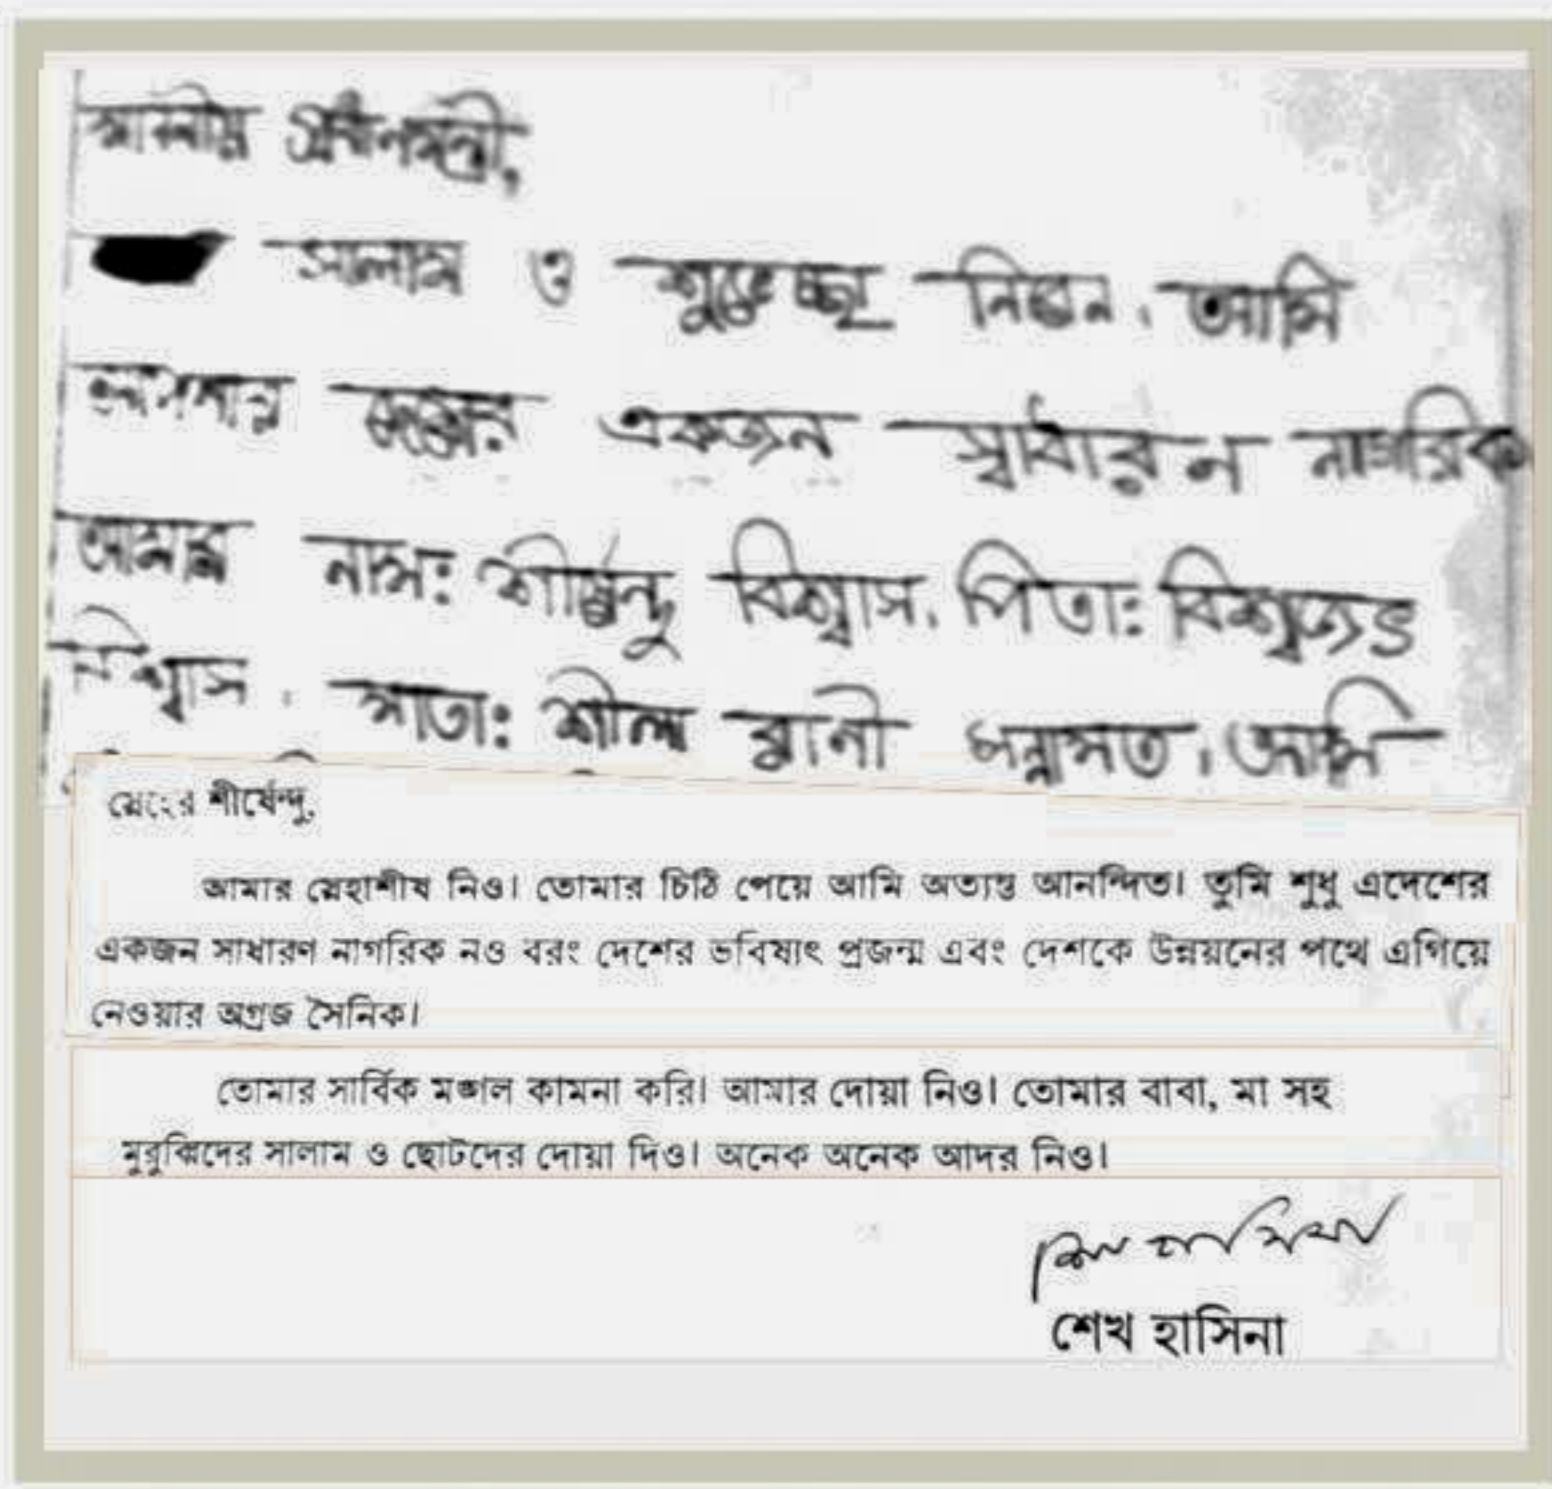 মাননীয় প্রধানমন্ত্রী,
সালাম ও শুভেচ্ছা নিবেন। আমি
আপনার দেশের একজন স্বাধারন নাগরিক
আমার নাম: শীর্ষেন্দু বিশ্বাস। পিতা: বিশ্বজিৎ
বিশ্বাস। মাতা: শীলা রানী সন্নামত। আমি
স্নেহের শীর্ষেন্দু,
আমার স্নেহাশীষ নিও। তোমার চিঠি পেয়ে আমি অত্যন্ত আনন্দিত। তুমি শুধু এদেশের
একজন সাধারণ নাগরিক নও বরং দেশের ভবিষ্যৎ প্রজন্ম এবং দেশকে উন্নয়নের পথে এগিয়ে
নেওয়ার অগ্রজ সৈনিক।
তোমার সার্বিক মঙ্গল কামনা করি। আমার দোয়া নিও। তোমার বাবা, মা সহ
মুরুব্বিদের সালাম ও ছোটদের দোয়া দিও। অনেক অনেক আদর নিও।
শেখ হাসিনা